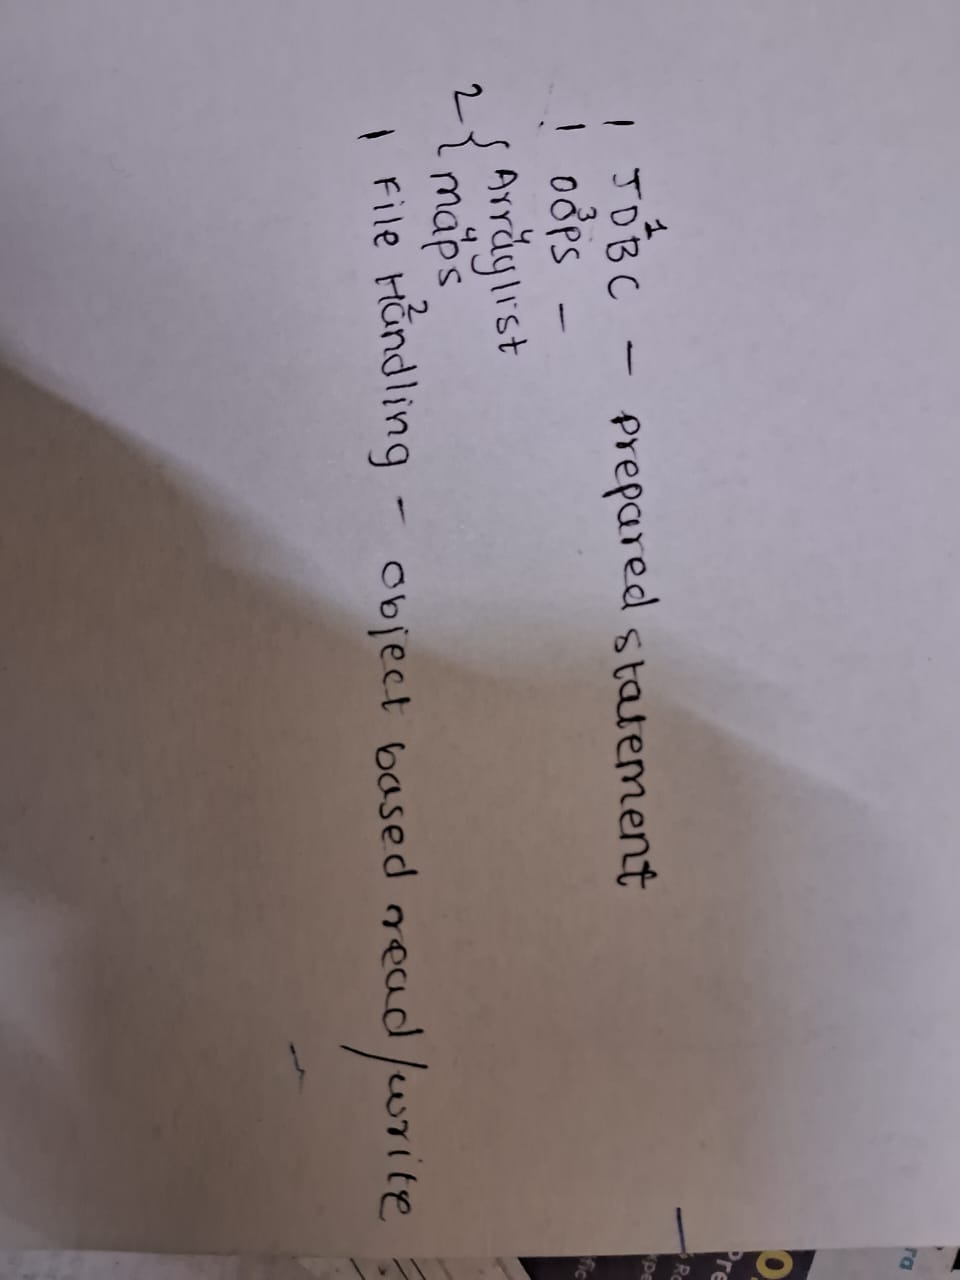 1
1 JDBC - prepared statement
3
! OOPS -
4
Arraylist
2 {
4
maps
2
1 File Handling - object based read/write
ra
O
Pre
Ro
xpe
fic